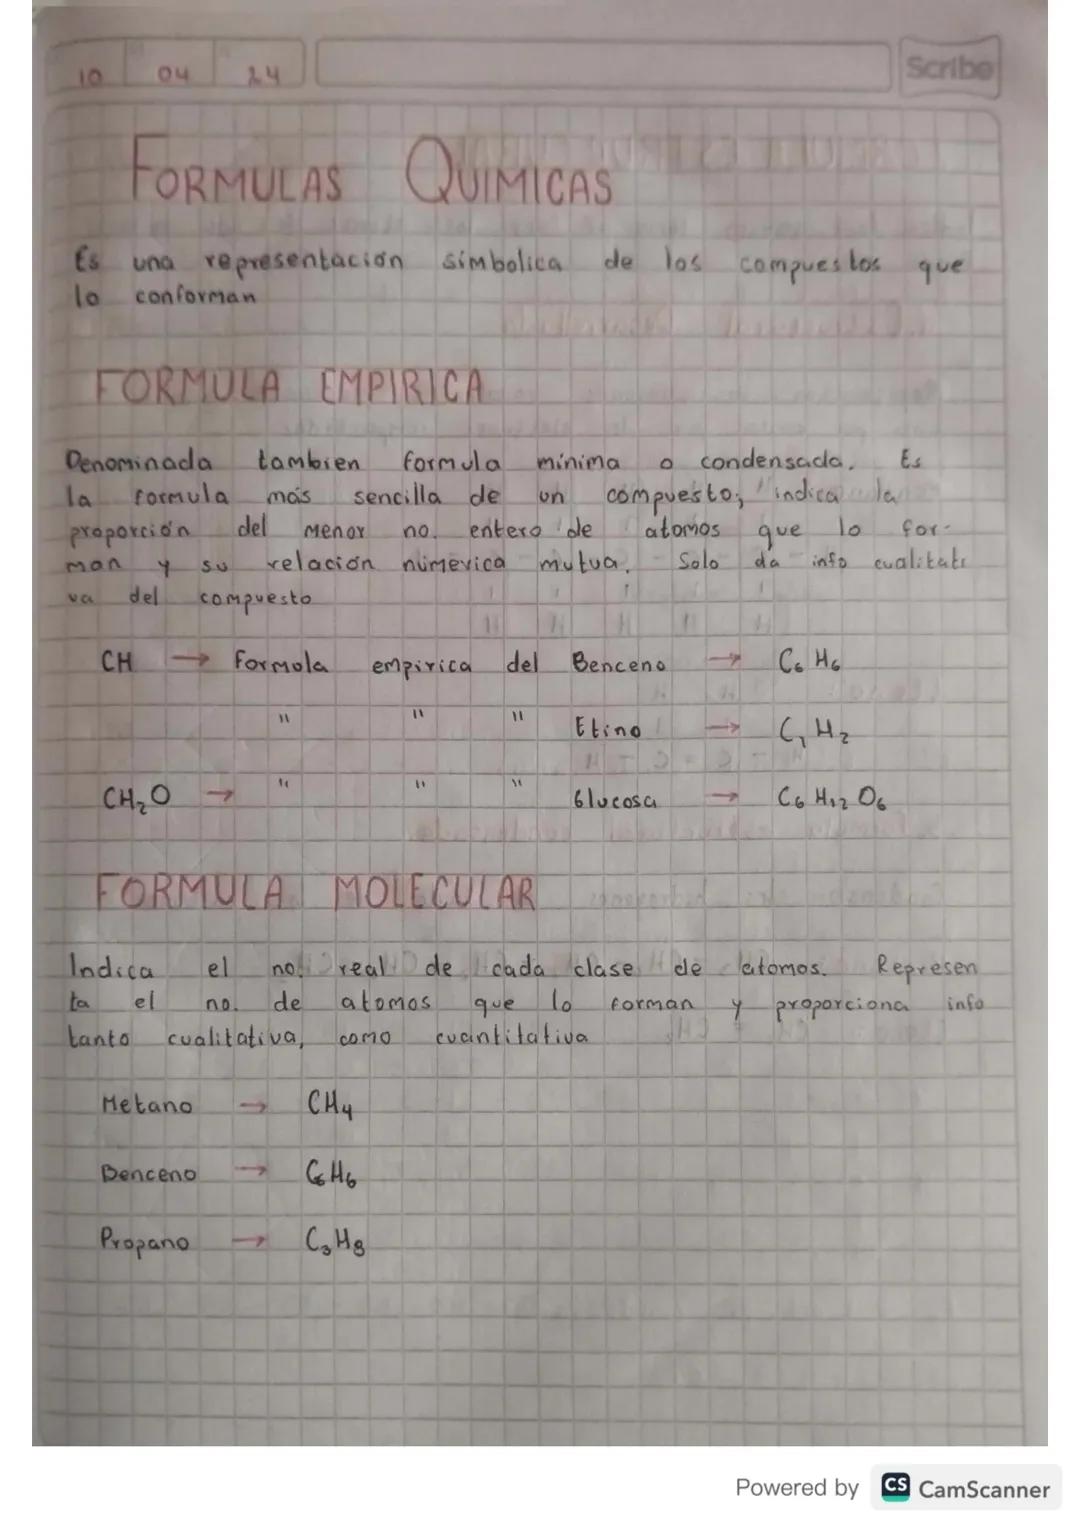 10 04 24
Scribe
FORMULAS QUIMICAS
Es una representación simbolica de los compuestos que
lo conforman
FORMULA EMPIRICA
Denominada tambien formula mínima o condensada. Es
la formula más sencilla de un compuesto; indica la
proporción del menor no. entero de atomos que lo for-
man y su relación númerica mutua. Solo da info cualitati
va del compuesto
CH → Formola empirica del Benceno → C₆ H₆
" " " Etino → C₁ H₂
CH₂O → " " " Glucosa → C₆ H₁₂ O₆
FORMULA MOLECULAR
Indica el no. real de cada clase de atomos. Represen
ta el no. de atomos que lo forman y proporciona info
tanto cualitativa, como cuantitativa
Metano → CH₄
Benceno → C₆H₆
Propano → C₃H₈
Powered by CS CamScanner